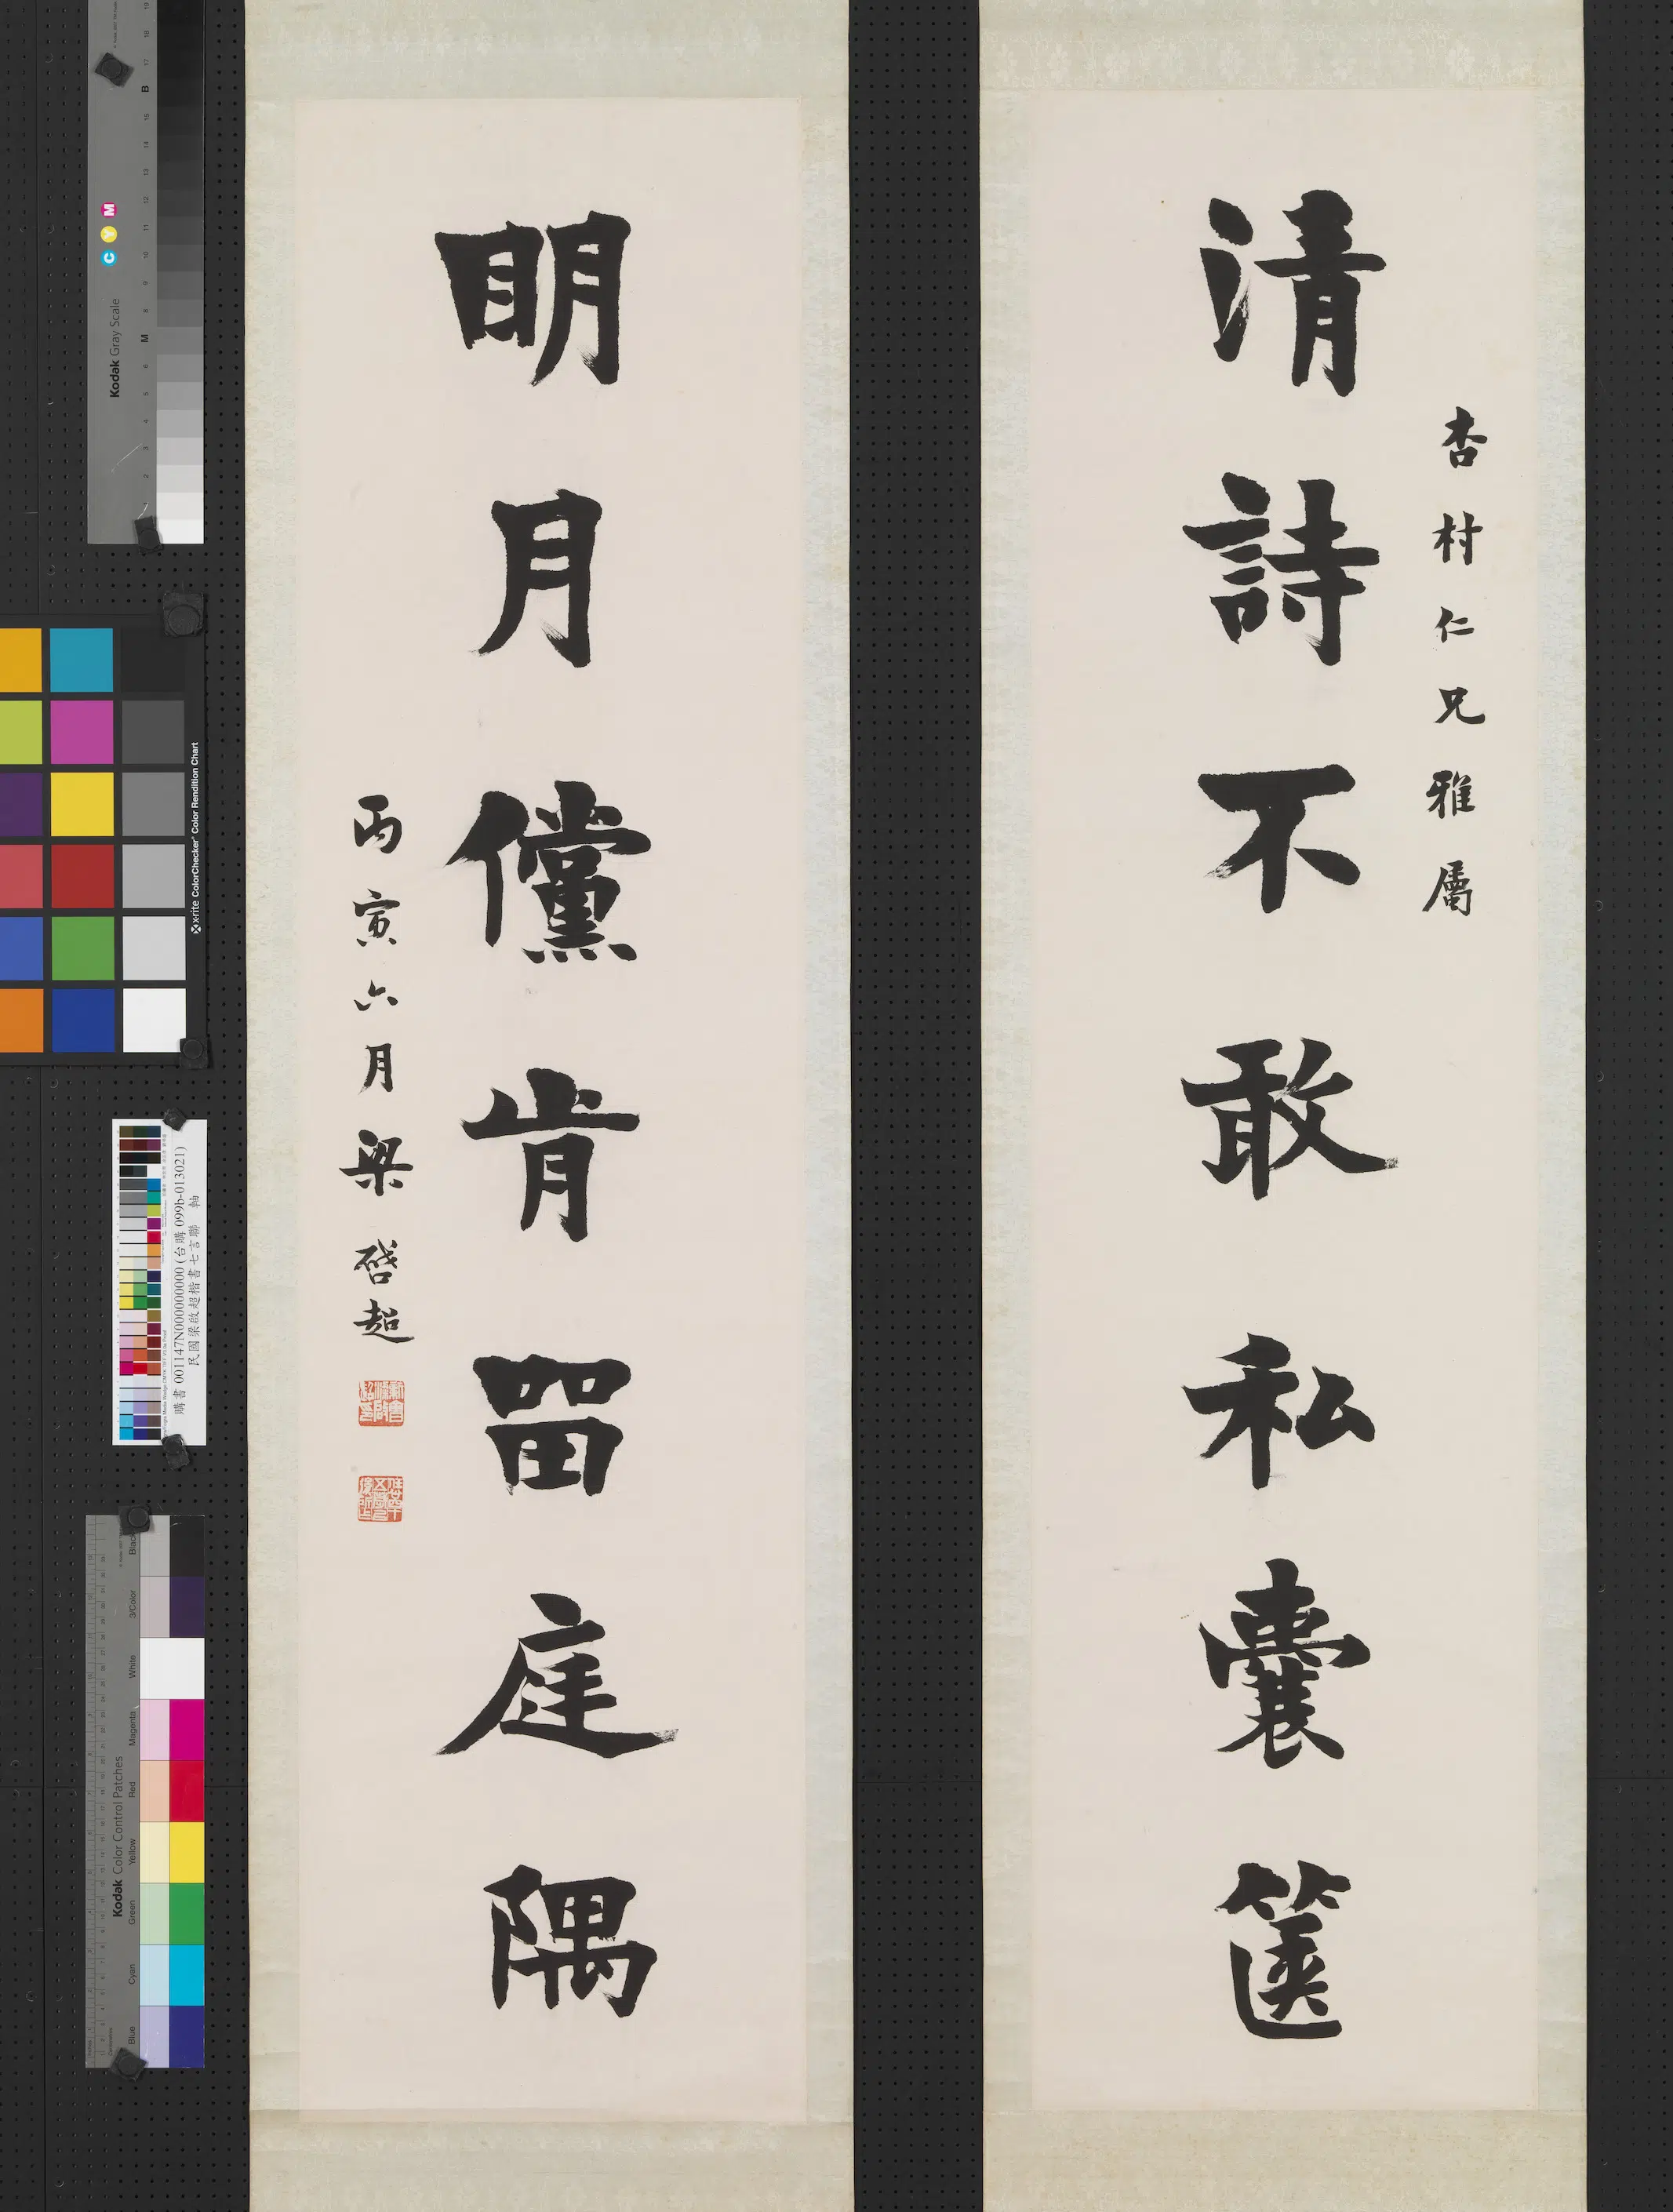 杏村仁兄雅屬
清詩不敢私囊篋
明月儻肯留庭隅
丙寅六月梁啓超
Kodak Gray Scale
C Y M
B
M
x-rite ColorChecker Color Rendition Chart
購書 001147N000000000 (台購 099b-013021)
民國梁啟超楷書七言聯 軸
Kodak Color Control Patches
Black
3/Color
White
Magenta
Red
Yellow
Green
Cyan
Blue